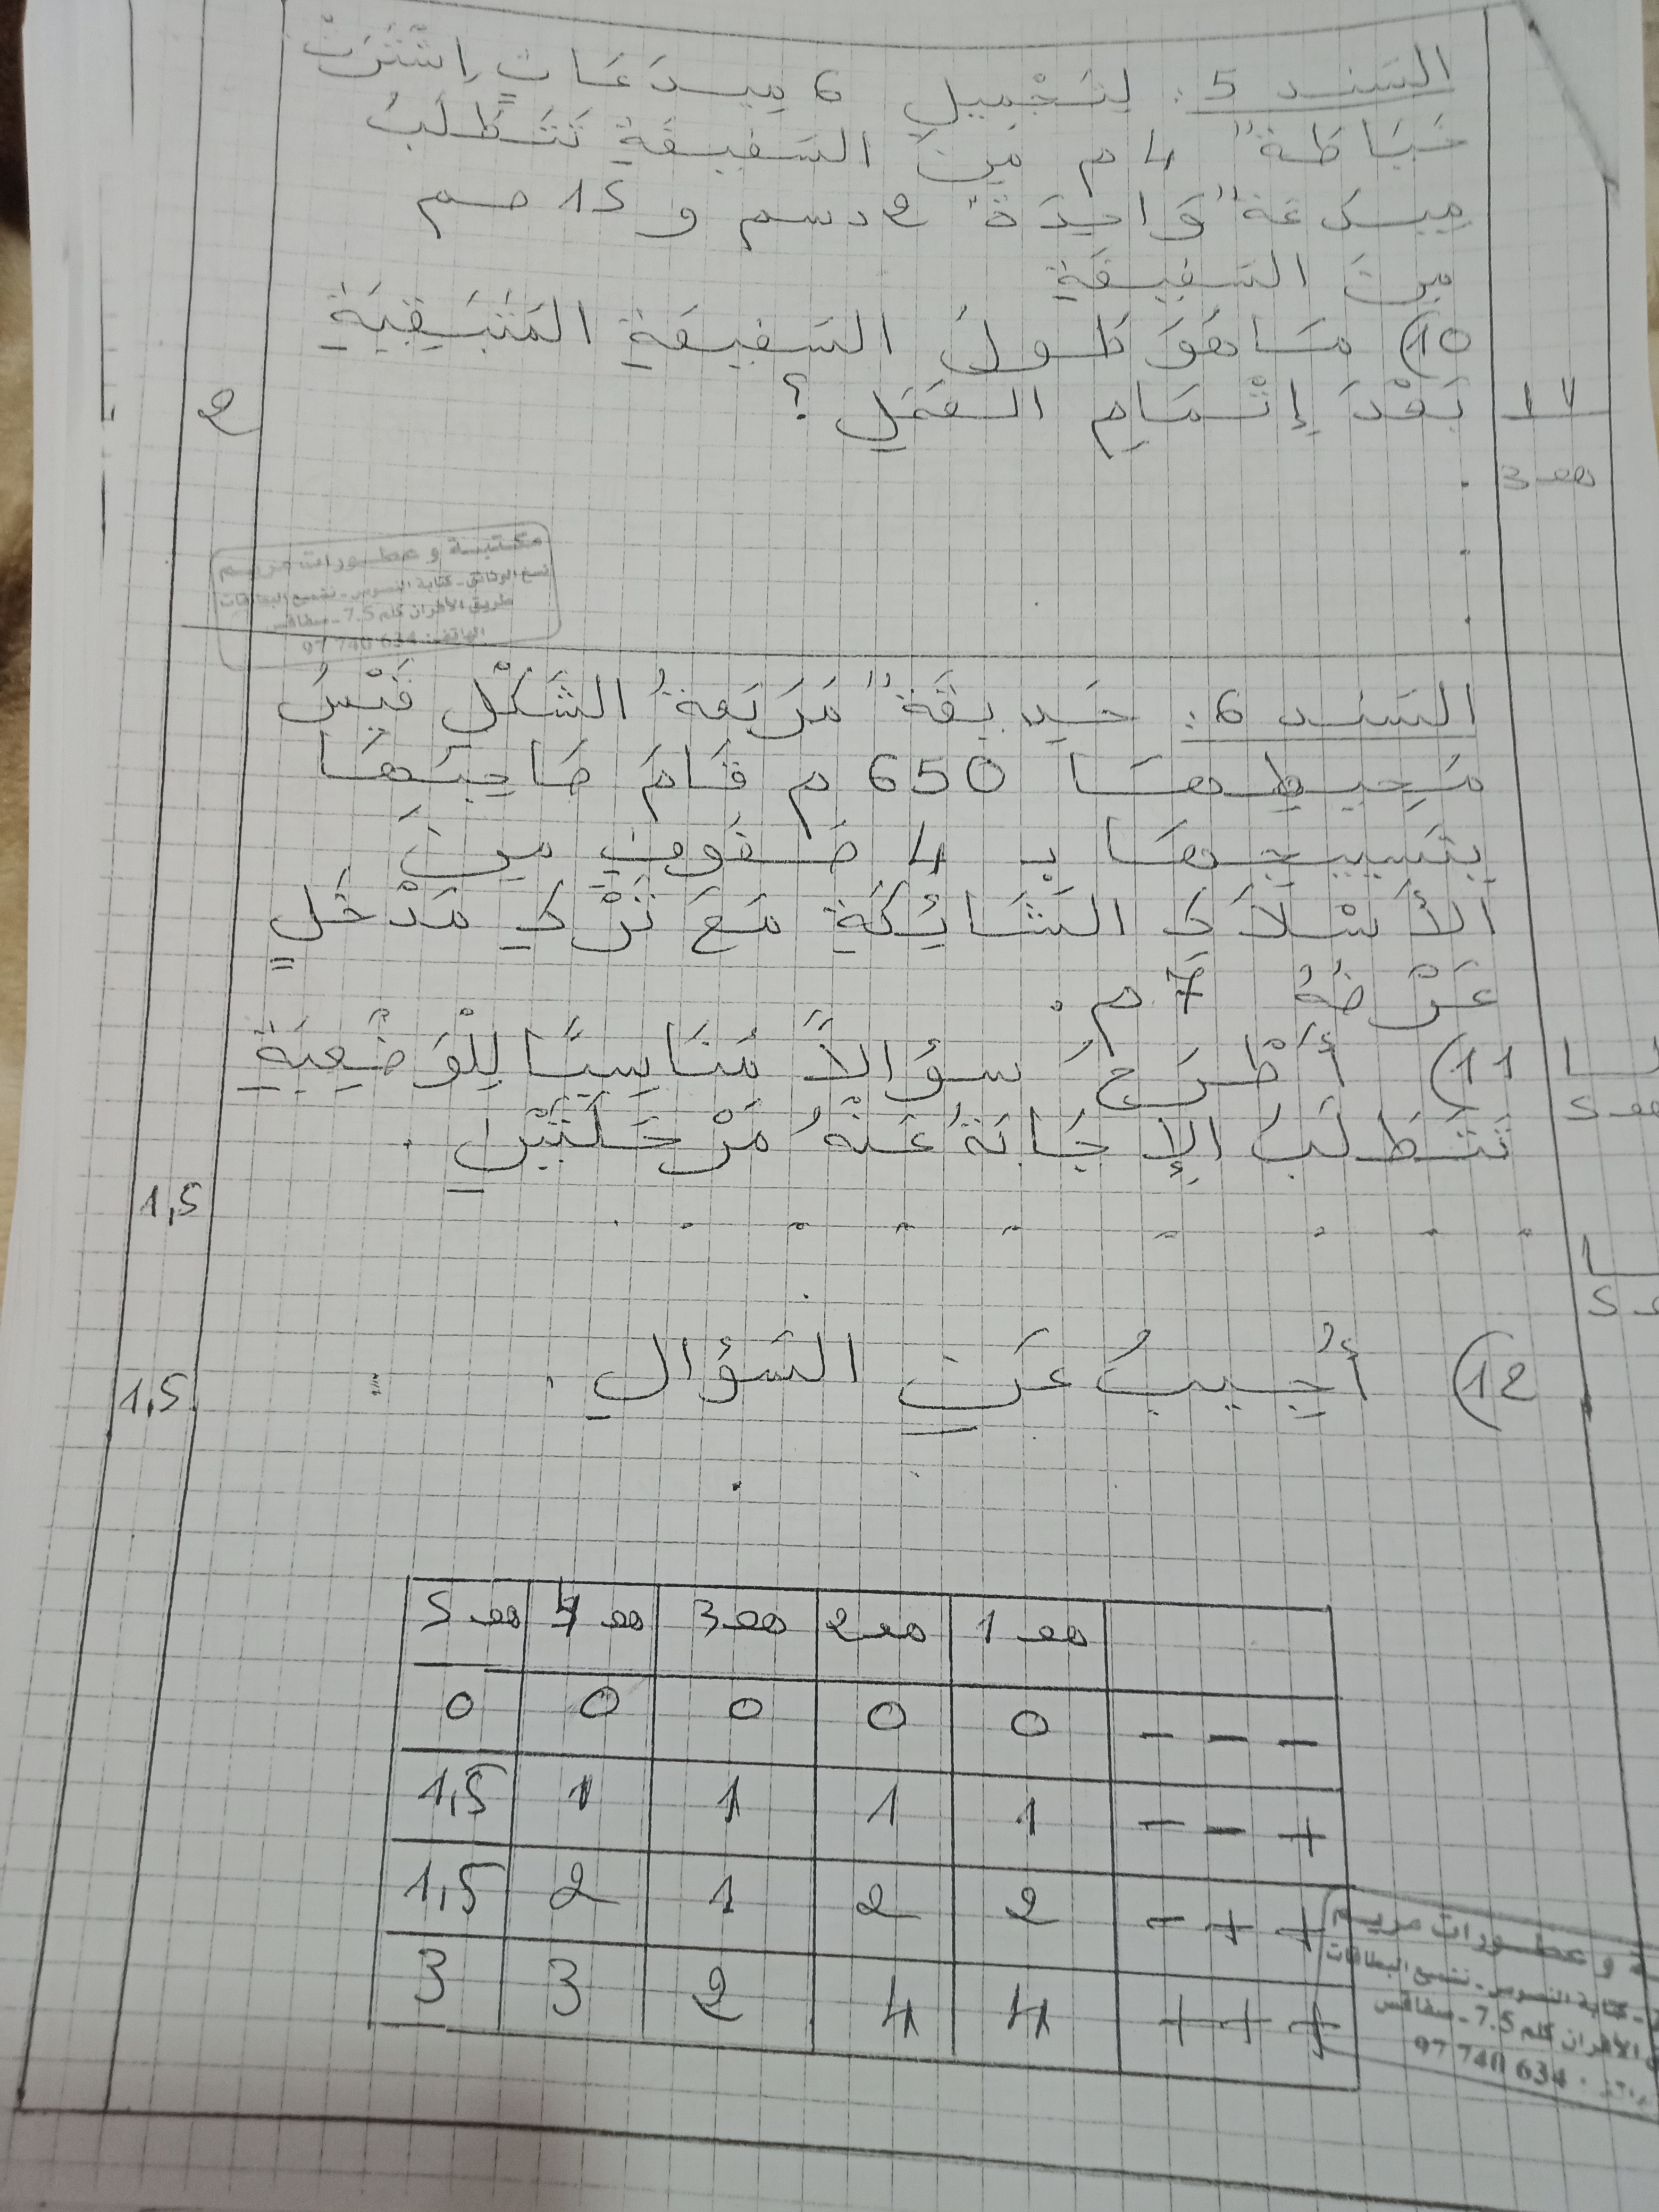 السند 5: لِتَجْمِيلِ 6 مِيدَعَاتٍ اِشْتَرَتْ
خَيَّاطَةٌ 4 م مِنَ السَّفِيفَةِ تَتَطَلَّبُ
مِيدَعَةٌ وَاحِدَةٌ 2 دسم و 15 صم
مِنَ السَّفِيفَةِ
10) مَا هُوَ طُولُ السَّفِيفَةِ المُتَبَقِّيَةِ
بَعْدَ إِتْمَامِ العَمَلِ ؟
2
مع 3
مكتبة و عطورات مريم
نسخ الوثائق - كتابة النصوص - تشميع البطاقات
طريق الأفران كلم 7.5 - صفاقس
الهاتف: 97 740 634
السند 6: حَدِيقَةٌ مُرَبَّعَةُ الشَّكْلِ قَيْسُ
مُحِيطِهَا 650 م قَامَ صَاحِبُهَا
بِتَسْيِيجِهَا بِـ 4 صُفُوفٍ مِنَ
الأَسْلاَكِ الشَّائِكَةِ مَعَ تَرْكِ مَدْخَلٍ
عَرْضُهُ 7 م.
11) أَطْرَحُ سُؤَالاً مُنَاسِبًا لِلْوَضْعِيَّةِ
تَتَطَلَّبُ الإِجَابَةُ عَنْهُ مَرْحَلَتَيْنِ .
1,5
12) أُجِيبُ عَنِ السُّؤَالِ .
1,5
مع 1 مع 2 مع 3 مع 4 مع 5
- - - 0 0 0 0 0
- - + 1 1 1 1 1,5
- + + 2 2 1 2 1,5
+ + + 4 4 2 3 3
و عطورات مريم
كتابة النصوص - تشميع البطاقات
الأفران كلم 7.5 - صفاقس
97 740 634